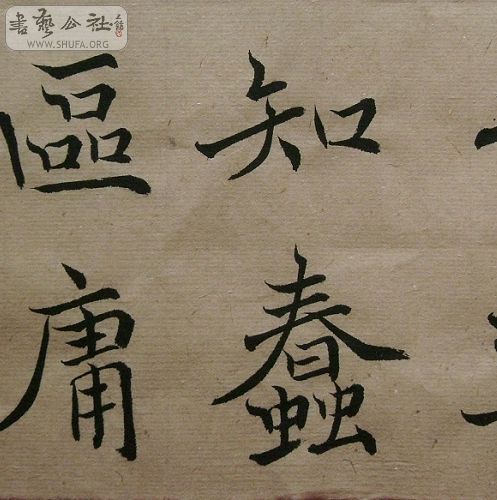 書藝公社
WWW.SHUFA.ORG
知蠢
區庸